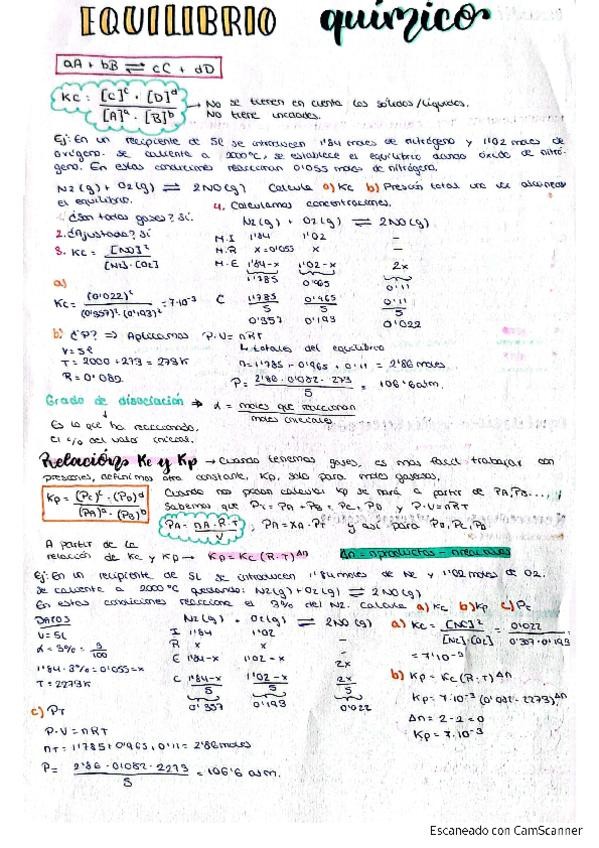 EQUILIBRIO químico
aA + bB ⇌ cC + dD
Kc = [C]ᶜ · [D]ᵈ / [A]ᵃ · [B]ᵇ → No se tienen en cuenta los sólidos/líquidos.
No tiene unidades.
Ej: En un recipiente de 5L se introducen 1'84 moles de nitrógeno y 1'02 moles de
oxígeno. se calienta a 2000°C, se establece el equilibrio dando óxido de nitró-
geno. En estas condiciones reaccionan 0'055 moles de nitrógeno.
N2(g) + O2(g) ⇌ 2NO(g) Calcula a) Kc b) Presión total una vez
el equilibrio.
¿Son todos gases? Sí. 4. Calculamos concentraciones.
2. ¿Ajustada? Sí N2(g) + O2(g) ⇌ 2NO(g)
3. Kc = [NO]² / [N2]·[O2] M.I 1'84 1'02 -
M.R x=0'055 x -
M.E 1'84-x 1'02-x 2x
1'785 0'965 0'11
a) Kc = (0'022)² / (0'357)¹·(0'193)¹ = 7·10⁻³ C 1'785/5 0'965/5 0'11/5
0'357 0'193 0'022
b) ¿P? ⇒ Aplicamos P·V = nRT
V = 5L totales del equilibrio
T = 2000 + 273 = 273K n = 1'785 + 0'965 + 0'11 = 2'86 moles
R = 0'082 P = 2'86 · 0'082 · 273 / 5 = 106'6 atm.
Grado de disociación → α = moles que reaccionan / moles iniciales
Es lo que ha reaccionado.
El % del valor inicial.
Relación Kc y Kp → Cuando tenemos gases, es más fácil trabajar con
presiones, definimos otra constante, Kp, solo para moles gaseosos.
Kp = (Pc)ᶜ · (PD)ᵈ / (PA)ᵃ · (PB)ᵇ Cuando nos pidan calcular Kp se hará a partir de PA, PB...
Sabemos que PT = PA + PB + PC + PD y P·V = nRT
PA = nA·R·T / V ; PA = XA · PT y así para PB, PC, PD
A partir de la
relación de Kc y Kp → Kp = Kc (R·T)^Δn Δn = nproductos - nreactivos
Ej: En un recipiente de 5L se introducen 1'84 moles de N2 y 1'02 moles de O2.
Se calienta a 2000°C quedando: N2(g) + O2(g) ⇌ 2NO(g)
En estas condiciones reacciona el 3% del N2. Calcula a) Kc b) Kp c) PT
DATOS N2(g) + O2(g) ⇌ 2NO(g) a) Kc = [NO]² / [N2]·[O2] = 0'022 / 0'357·0'193
V = 5L I 1'84 1'02 -
α = 3% = 3/100 R x x - = 7·10⁻³
E 1'84-x 1'02-x 2x
1'84·3% = 0'055 = x C 1'84-x/5 1'02-x/5 2x/5 b) Kp = Kc (R·T)^Δn
T = 2273K 0'357 0'193 0'022 Kp = 7·10⁻³ (0'082·2273)^Δn
c) PT Δn = 2-2 = 0
P·V = nRT Kp = 7·10⁻³
nT = 1'785 + 0'965 + 0'11 = 2'86 moles
P = 2'86 · 0'082 · 2273 / 5 = 106'6 atm.
Escaneado con CamScanner